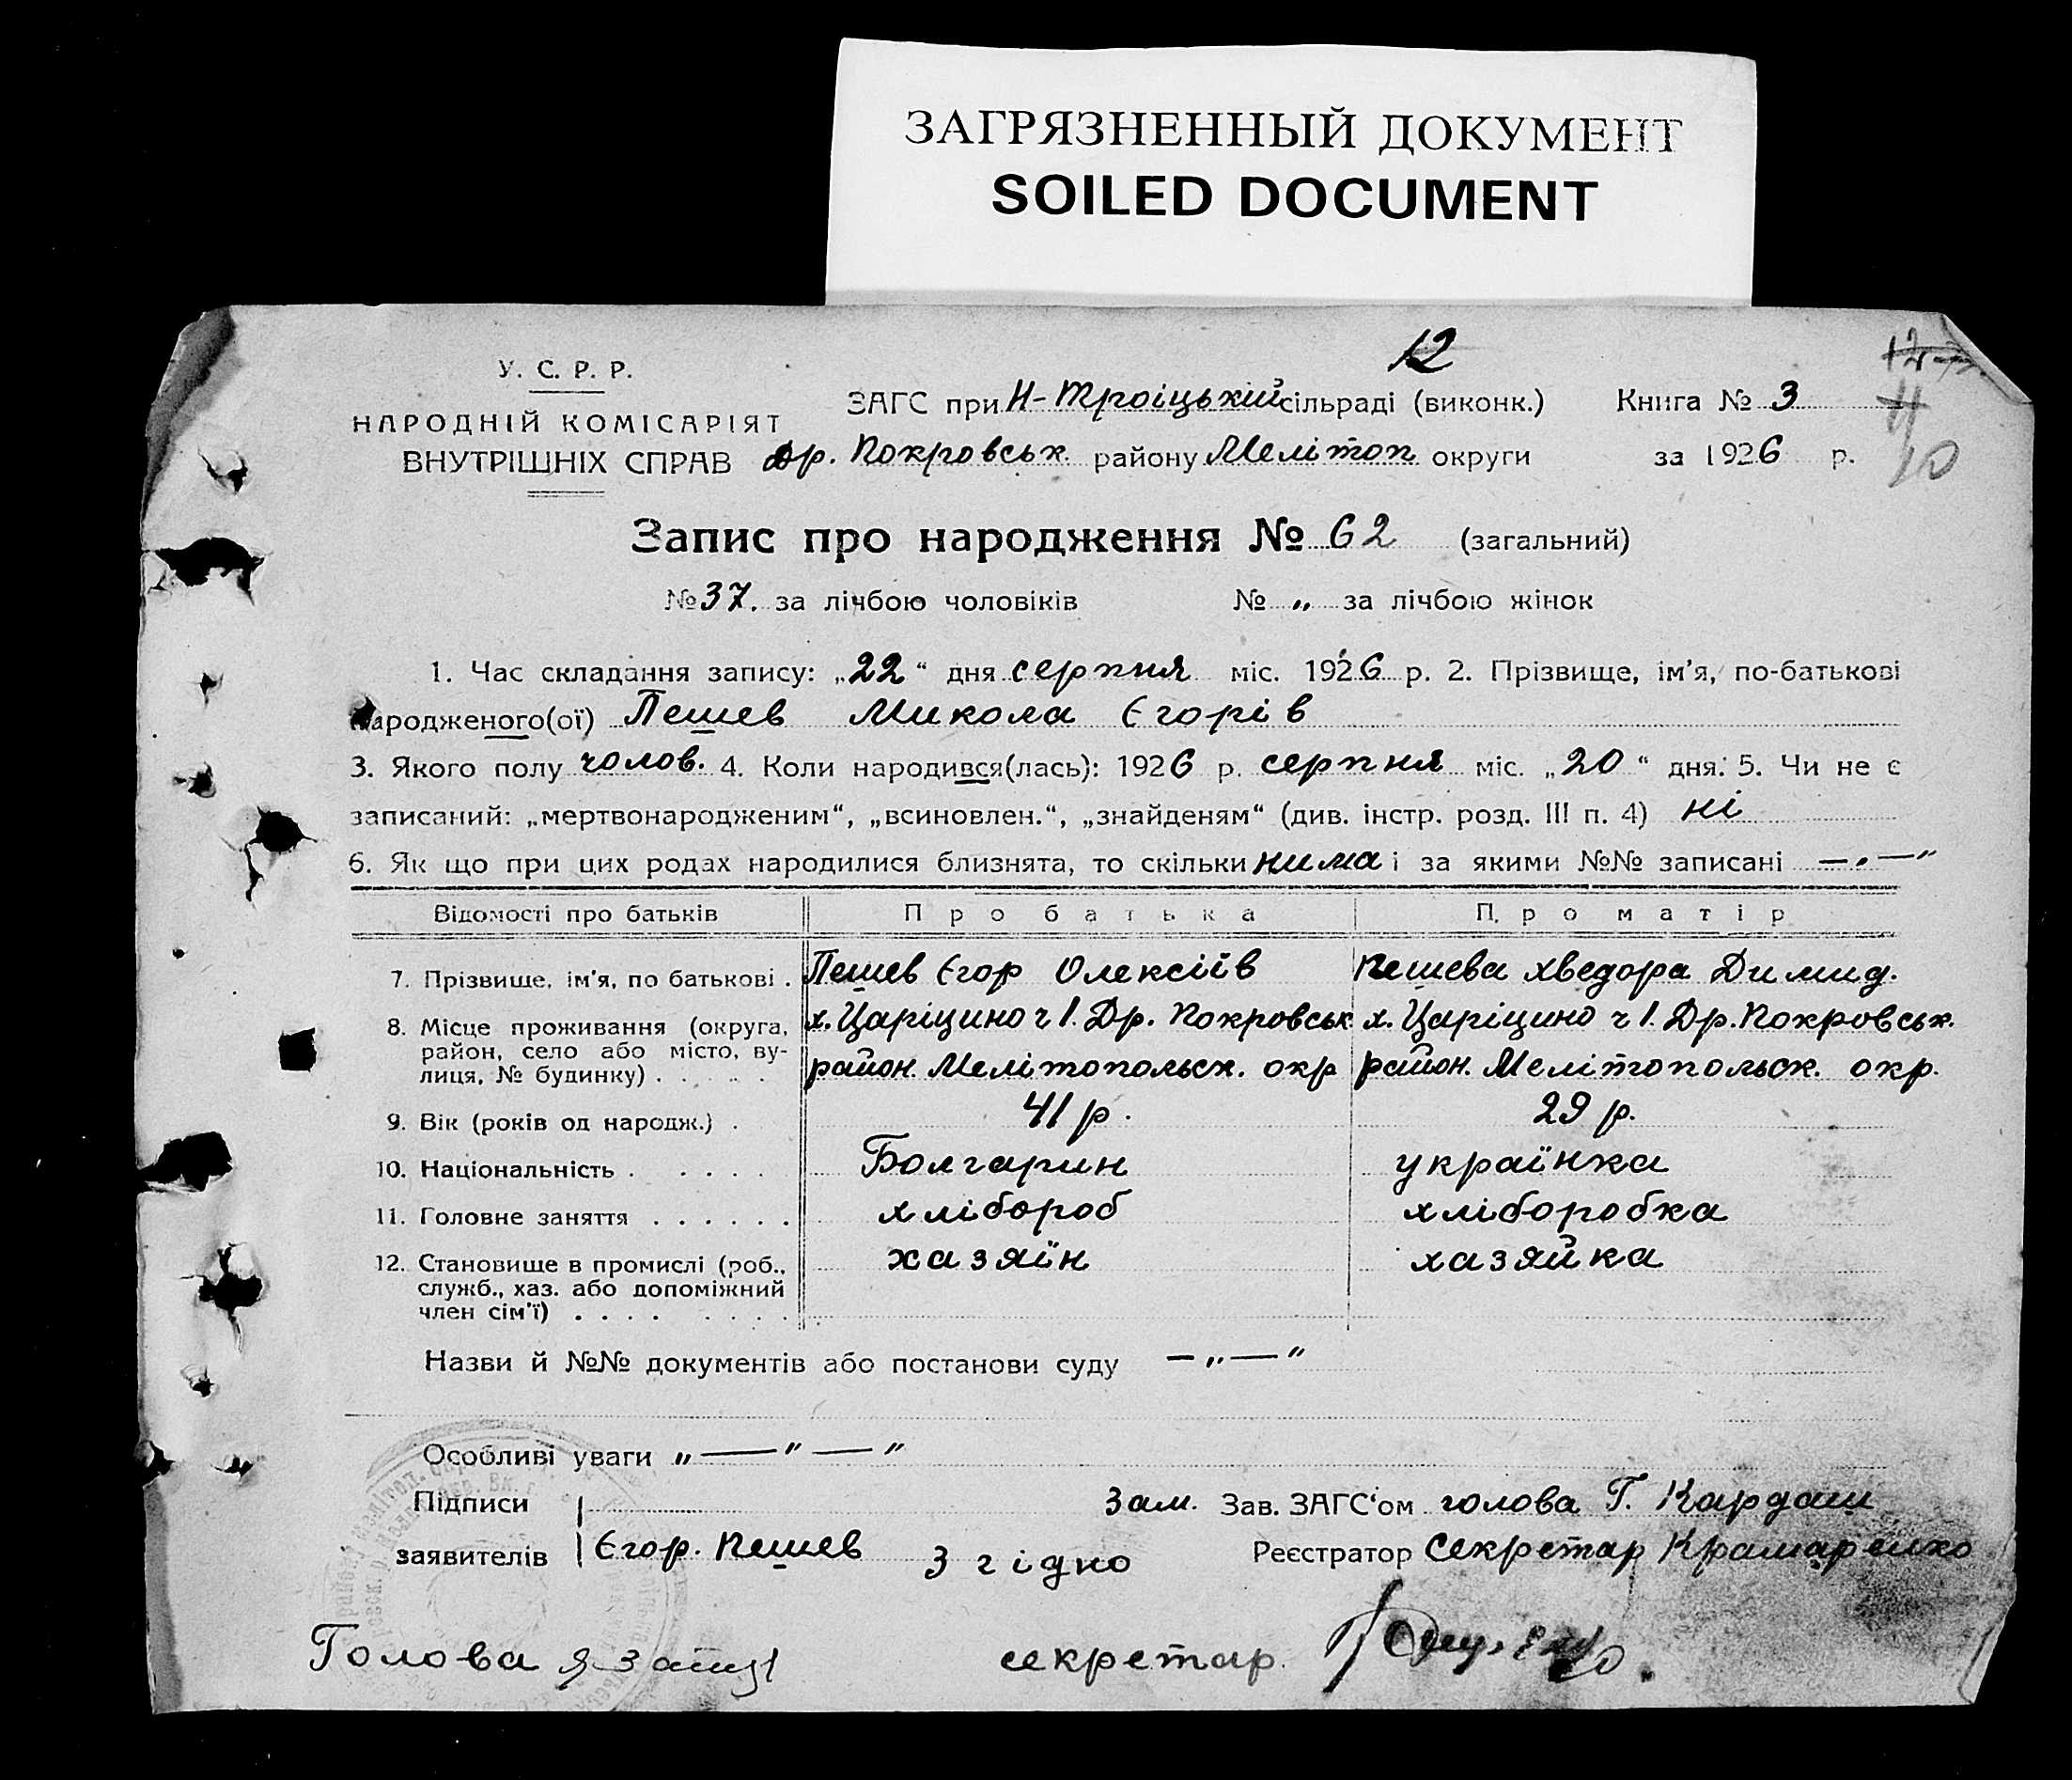 ЗАГРЯЗНЕННЫЙ ДОКУМЕНТ
SOILED DOCUMENT
12
У. С. Р. Р.
НАРОДНІЙ КОМІСАРІЯТ
ВНУТРІШНІХ СПРАВ
ЗАГС при Н-Троіцькій сільраді (виконк.) Книга № 3
Др. Покровськ. району Мелітоп округи за 1926 р.
11
10
Запис про народження № 62 (загальний)
№ 37. за лічбою чоловіків № „ за лічбою жінок
1. Час складання запису: „22“ дня серпня міс. 1926 р. 2. Прізвище, ім'я, по-батькові
народженого(ої) Пешев Микола Єгорів
3. Якого полу чолов. 4. Коли народився(лась): 1926 р. серпня міс. „20“ дня. 5. Чи не є
записаний: „мертвонародженим“, „всиновлен.“, „знайденям“ (див. інстр. розд. III п. 4) ні
6. Як що при цих родах народилися близнята, то скільки нима і за якими №№ записані —„—“
Відомості про батьків Про батька Про матір
7. Прізвище, ім'я, по батькові . Пешев Єгор Олексіїв Пешева Хведора Димид.
8. Місце проживання (округа, район, село або місто, вулиця, № будинку) . . . . .
х. Царіцино ч 1. Др. Покровськ х. Царіцино ч 1. Др. Покровськ.
район. Мелітопольск. окр район. Мелітопольск. окр.
9. Вік (років од народж.) . 41 р. 29 р.
10. Національність . . . . . Болгарин українка
11. Головне заняття . . . . . . хлібороб хліборобка
12. Становище в промислі (роб., служб., хаз. або допоміжний член сім'ї) . . . . . . . .
хазяїн хазяйка
Назви й №№ документів або постанови суду —„—“
Особливі уваги „—“—“
Підписи Зам. Зав. ЗАГС'ом голова Г. Кардаш
заявителів Єгор. Пешев Згідно Реєстратор Секретар Крамаренко
Голова секретар.